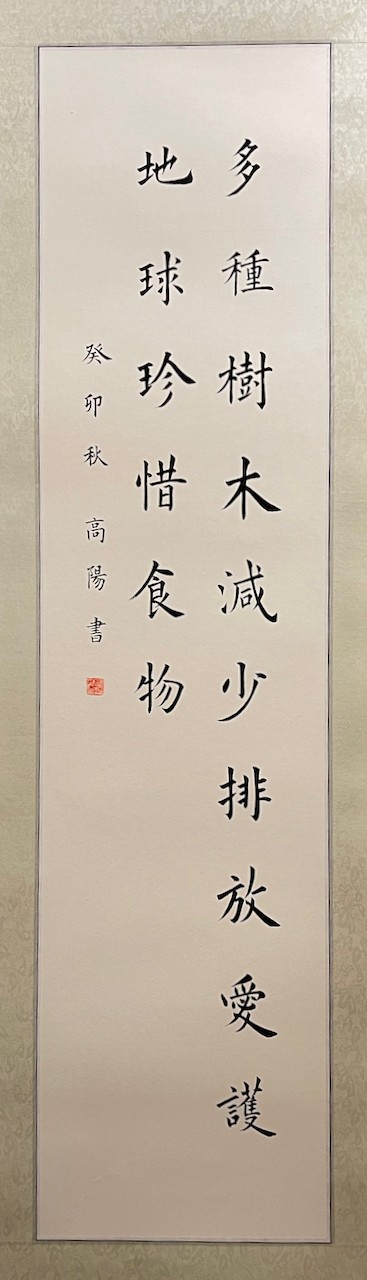 多種樹木減少排放愛護
地球珍惜食物
癸卯秋 高陽書